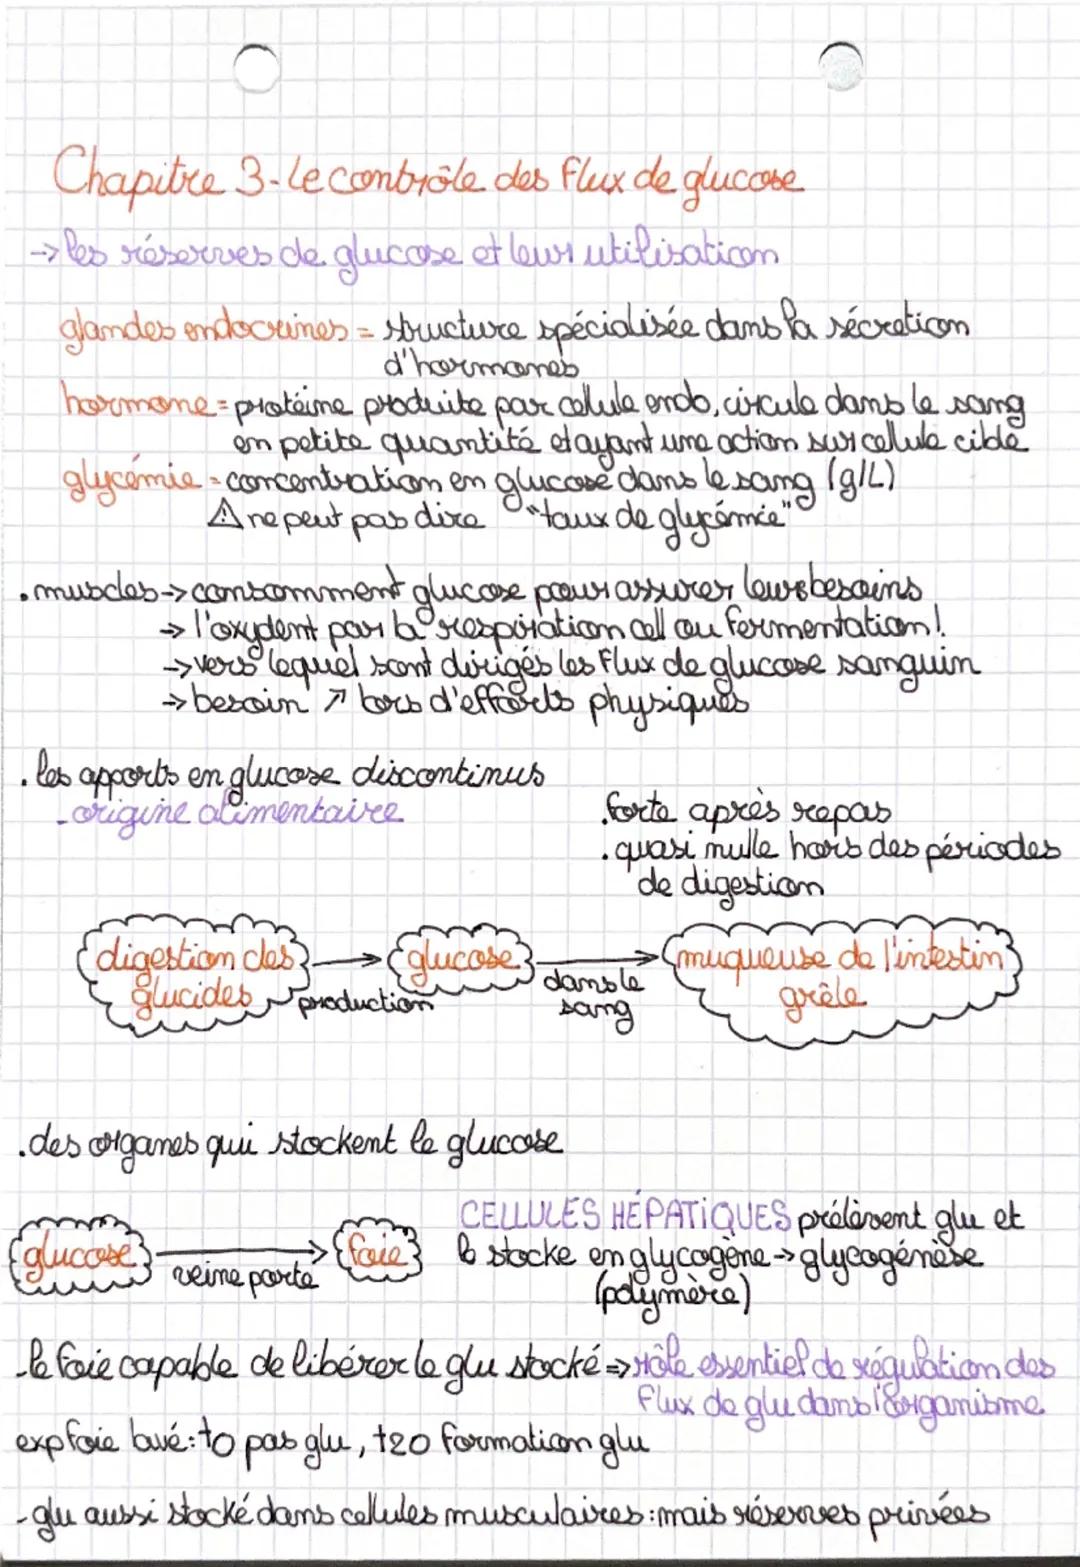 Chapitre 3 - Le contrôle des flux de glucose
→ les réserves de glucose et leur utilisation
glandes endocrines = structure spécialisée dans la sécretion
d'hormones
hormone = protéine produite par cellule endo, circule dans le sang
en petite quantité et ayant une action sur cellule cible
glycémie = concentration en glucose dans le sang (g/L)
⚠ ne peut pas dire "taux de glycémie"
. muscles → consomment glucose pour assurer leurs besoins
→ l'oxydent par la respiration cell ou fermentation!
→ vers lequel sont dirigés les flux de glucose sanguin
→ besoin ↗ lors d'efforts physiques
. les apports en glucose discontinus
- origine alimentaire
. forte après repas
. quasi nulle hors des périodes
de digestion
digestion des
glucides
production
glucose
dans le
sang
muqueuse de l'intestin
grêle
. des organes qui stockent le glucose
glucose
veine porte
foie
CELLULES HÉPATIQUES prélèvent glu et
le stocke en glycogène → glycogénèse
(polymère)
- le foie capable de libérer le glu stocké => rôle essentiel de régulation des
flux de glu dans l'organisme
exp foie lavé : t0 pas glu, t20 formation glu
- glu aussi stocké dans cellules musculaires : mais réserves privées